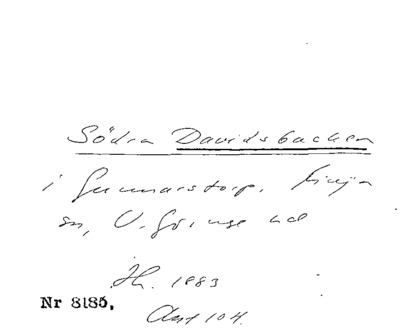 Södra Davidsbacken
i Gunnarstorp, Finja
sn, V. Göinge hd
Th. 1883
Nr 8185.
Aust 104.